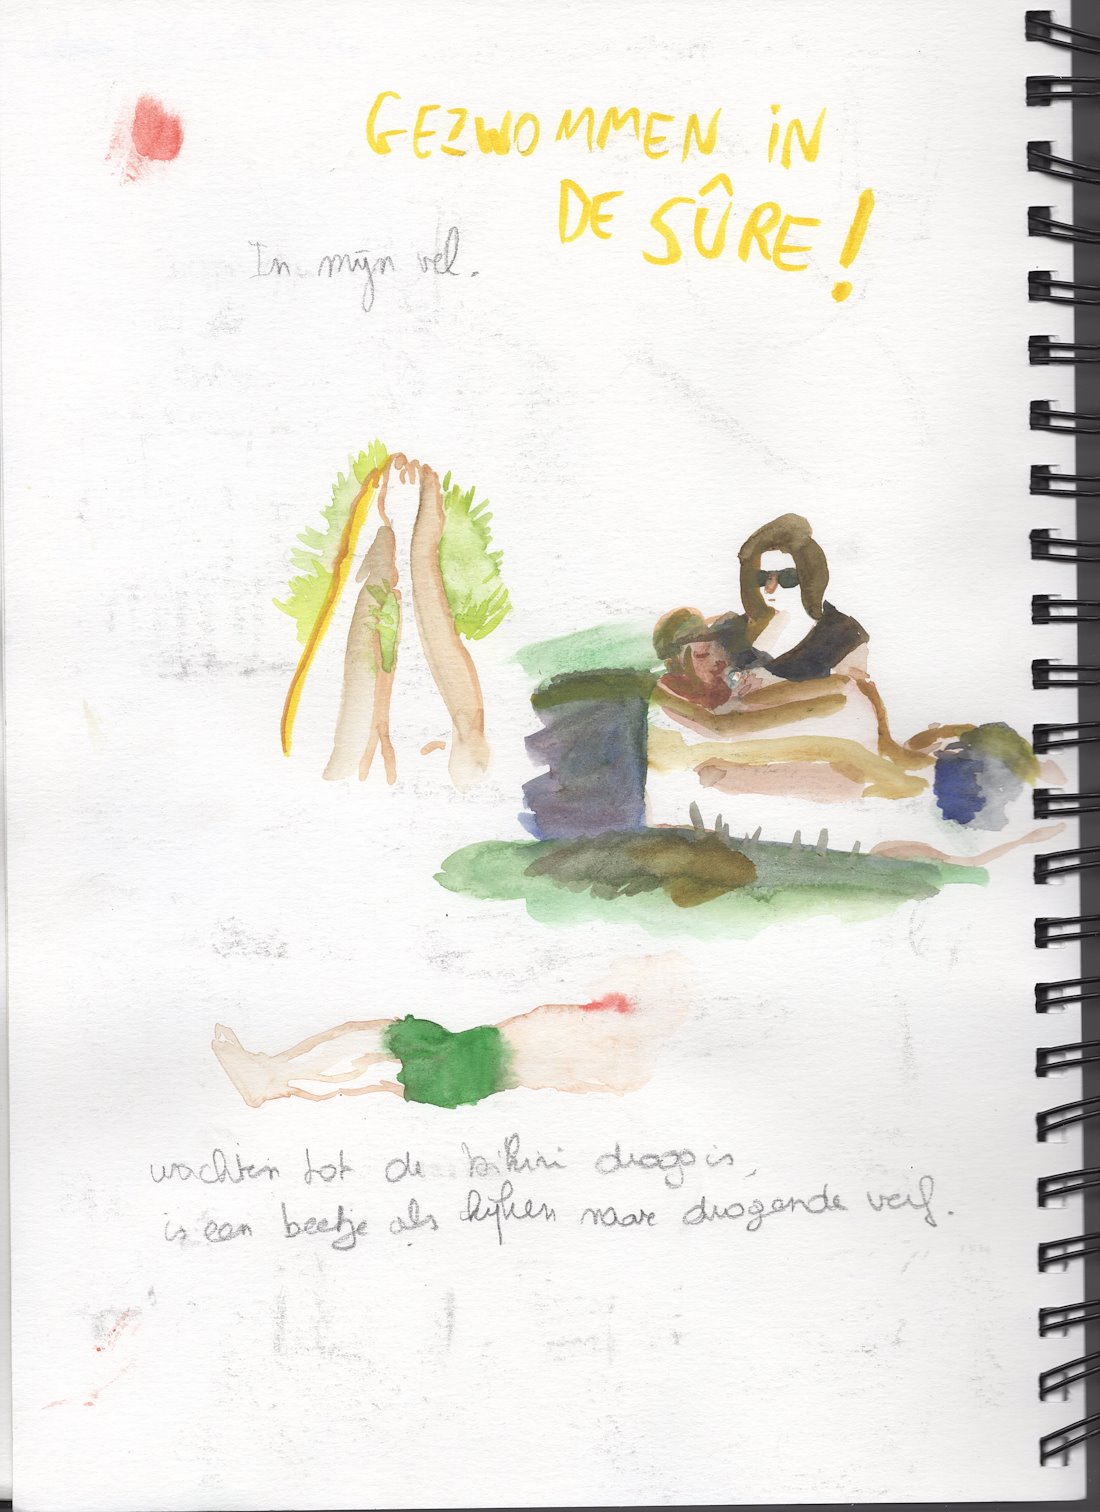 GEZWOMMEN iN
DE SÛRE!
In mijn vel.
wachten tot de bikini droog is,
is een beetje als kijken naar drogende verf.